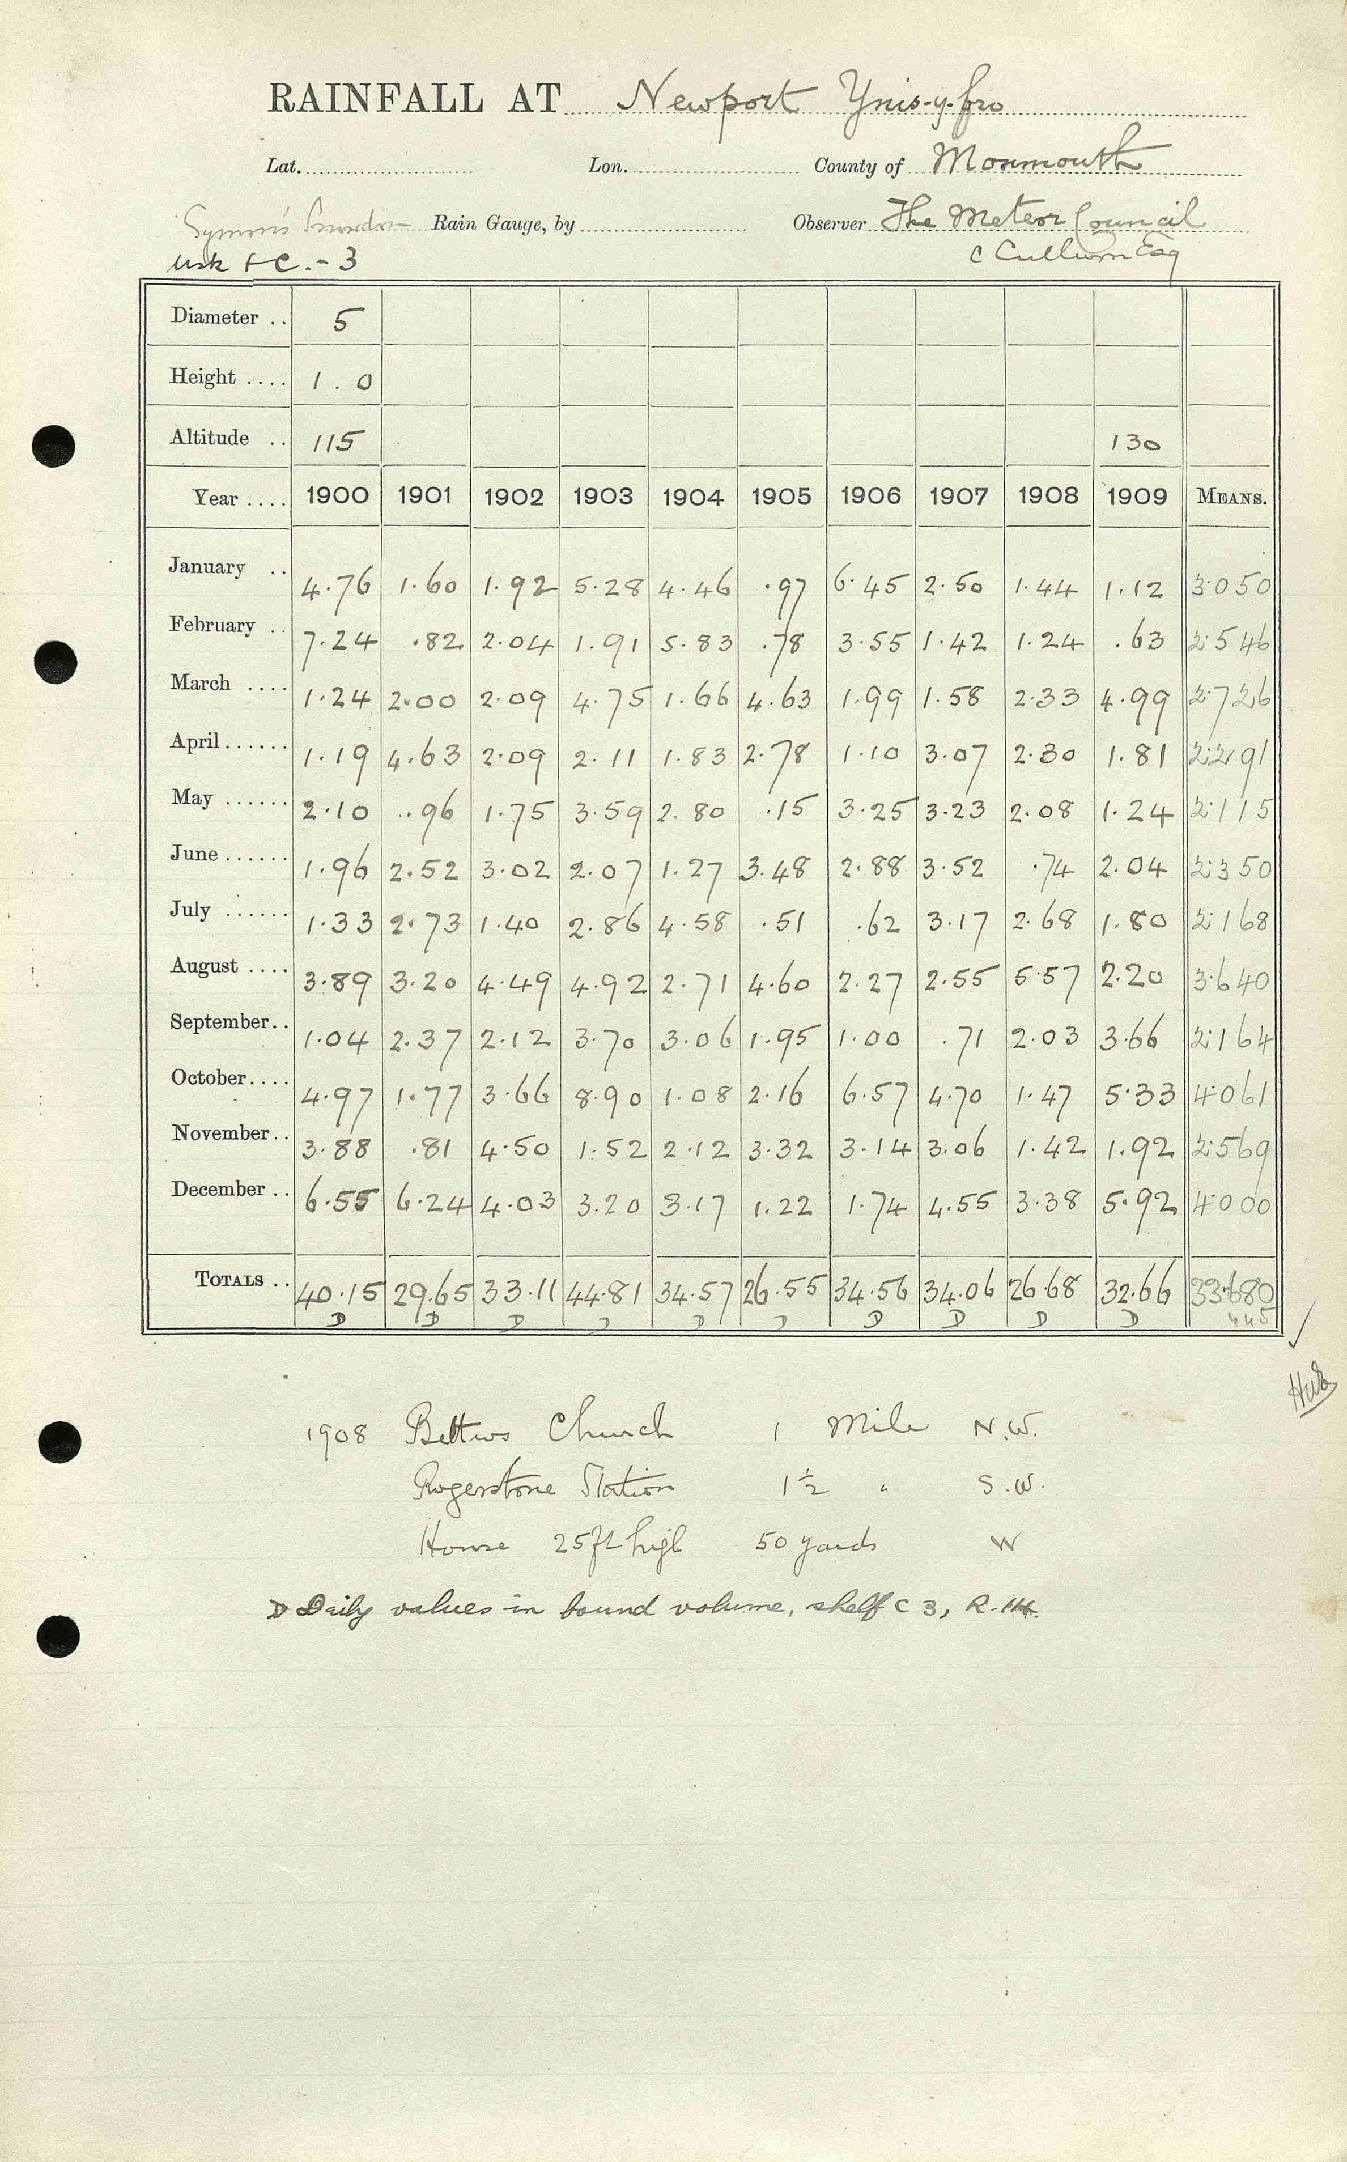 RAINFALL AT Newport Ynis-y-fro
Lat. Lon. County of Monmouth
Symon's Snowdon Rain Gauge, by Observer The Meteor Council
Usk & C. - 3 C Cullum Esq
Diameter .. 5
Height .... 1.0
Altitude .. 115 130
Year .... 1900 1901 1902 1903 1904 1905 1906 1907 1908 1909 MEANS.
January .. 4.76 1.60 1.92 5.28 4.46 .97 6.45 2.50 1.44 1.12 3.050
February .. 7.24 .82 2.04 1.91 5.83 .78 3.55 1.42 1.24 .63 2.546
March .... 1.24 2.00 2.09 4.75 1.66 4.63 1.99 1.58 2.33 4.99 2.726
April...... 1.19 4.63 2.09 2.11 1.83 2.78 1.10 3.07 2.30 1.81 2.291
May ...... 2.10 .96 1.75 3.59 2.80 .15 3.25 3.23 2.08 1.24 2.115
June...... 1.96 2.52 3.02 2.07 1.27 3.48 2.88 3.52 .74 2.04 2.350
July ...... 1.33 2.73 1.40 2.86 4.58 .51 .62 3.17 2.68 1.80 2.168
August .... 3.89 3.20 4.49 4.92 2.71 4.60 2.27 2.55 5.57 2.20 3.640
September.. 1.04 2.37 2.12 3.70 3.06 1.95 1.00 .71 2.03 3.66 2.164
October.... 4.97 1.77 3.66 8.90 1.08 2.16 6.57 4.70 1.47 5.33 4.061
November.. 3.88 .81 4.50 1.52 2.12 3.32 3.14 3.06 1.42 1.92 2.569
December .. 6.55 6.24 4.03 3.20 3.17 1.22 1.74 4.55 3.38 5.92 4.000
TOTALS .. 40.15 29.65 33.11 44.81 34.57 26.55 34.56 34.06 26.68 32.66 33.680
D D D D D D D D D D 445
1908 Bettws Church 1 Mile N.W.
Rogerstone Station 1½ " S.W.
House 25 ft high 50 yards W
D Daily values in bound volume, shelf C 3, R.